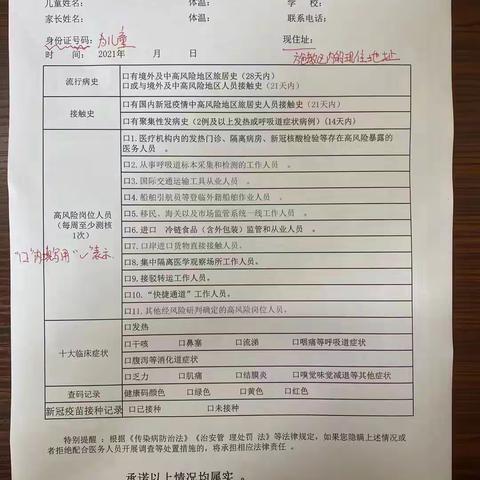 儿童姓名: 体温: 学 校:
家长姓名: 体温: 联系电话:
身份证号码: 为儿童 现住址:
时 间: 2021年 月 日 渝教区内的现住地址
流行病史
口有境外及中高风险地区旅居史(28天内)
口或与境外及中高风险地区人员接触史(21天内)
接触史
口有国内新冠疫情中高风险地区旅居史人员接触史(21天内)
口有聚集性发病史(2例及以上发热或呼吸道症状病例)(14天内)
高风险岗位人员
(每周至少测核
1次)
"口"内填写用"✓"表示.
口1. 医疗机构内的发热门诊、隔离病房、新冠核酸检验等存在高风险暴露的
医务人员 。
口2. 从事呼吸道标本采集和检测的工作人员 。
口3. 国际交通运输工具从业人员 。
口4. 船舶引航员等登临外籍船舶作业人员 。
口5. 移民、海关以及市场监管系统一线工作人员 。
口6. 进口 冷链食品(含外包装)监管和从业人员 。
口7. 口岸进口货物直接接触人员。
口8. 集中隔离医学观察场所工作人员。
口9. 接驳转运工作人员。
口10. “快捷通道”工作人员。
口11. 其他经风险研判确定的高风险岗位人员。
十大临床症状
口发热
口干咳 口鼻塞 口流涕 口咽痛等呼吸道症状
口腹泻等消化道症状
口乏力 口肌痛 口结膜炎 口嗅觉味觉减退等其他症状
查码记录 健康码颜色 口绿色 口黄色 口红色
新冠疫苗接种记录 口已接种 口未接种
特别提醒 :根据《传染病防治法》《治安管 理处罚 法》等法律规定,如果您隐瞒上述情况或
者拒绝配合医务人员开展调查等处置措施的,将承担相应法律责任 。
承诺以上情况均属实 。